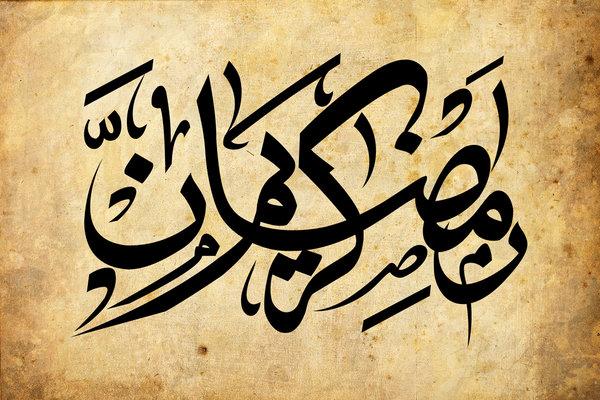 رمضان كريم